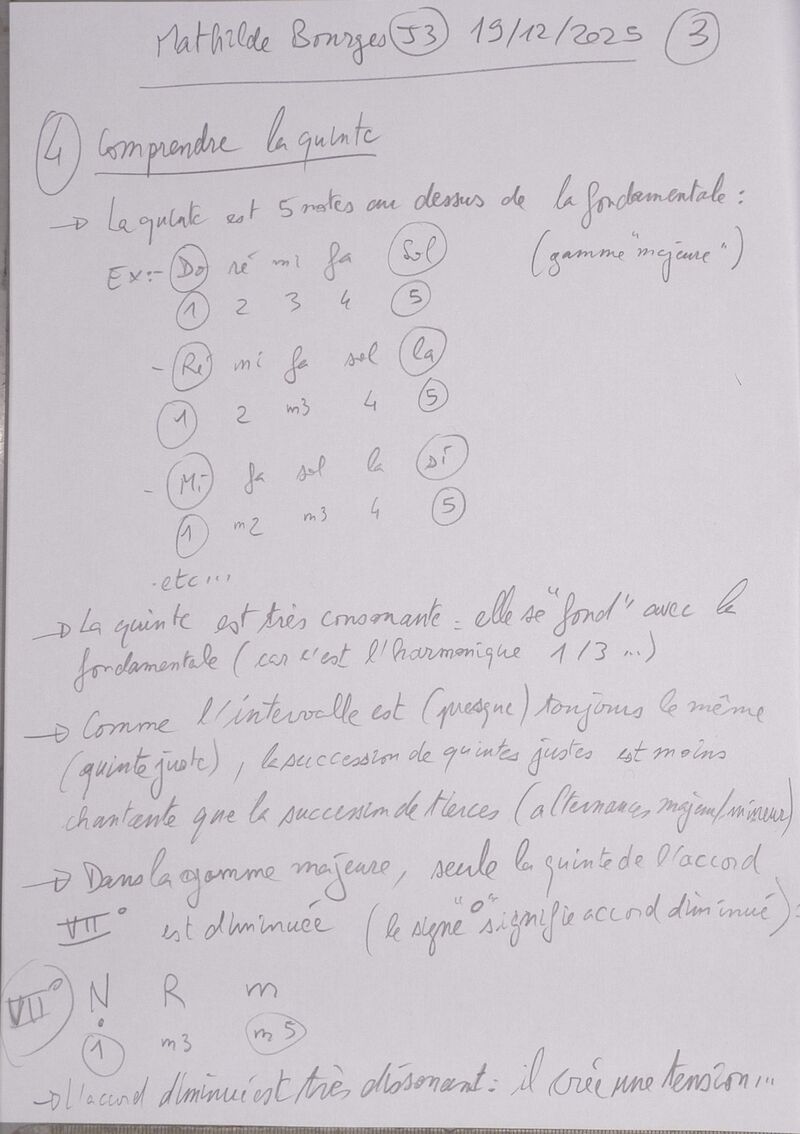 Mathilde Bourges J3 19/12/2025 3
4 Comprendre la quinte
→ La quinte est 5 notes au dessus de la fondamentale :
Ex:- Do ré mi fa Sol (gamme "majeure")
1 2 3 4 5
- Ré mi fa sol la
1 2 m3 4 5
- Mi fa sol la si
1 m2 m3 4 5
. etc...
→ La quinte est très consonante : elle se "fond" avec la
fondamentale (car c'est l'harmonique 1/3 ...)
→ Comme l'intervalle est (presque) toujours le même
(quinte juste), la succession de quintes justes est moins
chantante que la succession de tierces (alternances majeur/mineur)
→ Dans la gamme majeure, seule la quinte de l'accord
VII° est diminuée (le signe "°" signifie accord diminué) :
VII° N R m
1 m3 m5
→ L'accord diminué est très dissonant : il crée une tension...